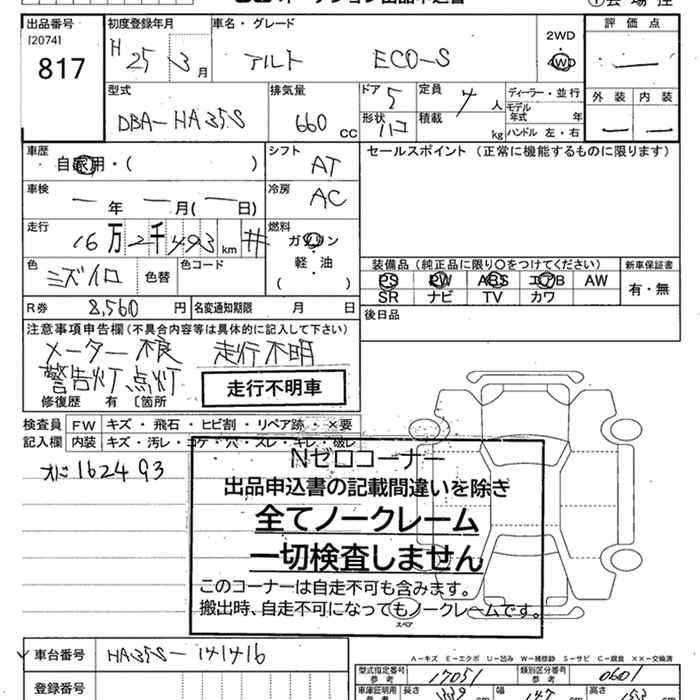 出品番号 初度登録年月 車名・グレード 評価点
[2074] 817 H 25 3月 アルト ECO-S 2WD 4WD —
型式 排気量 ドア 定員 ディーラー・並行 外装 内装
DBA-HA35S 660 CC 5 4人 モデル年式 年 — —
形状 ハコ 積載 kg ハンドル 左・右
車歴 自家用・( ) シフト AT セールスポイント (正常に機能するものに限ります)
車検 — 年 — 月(— 日) 冷房 AC
走行 16万2千493km # 燃料 ガソリン
軽・油
( )
色 ミズイロ 色替 色コード
装備品(純正品に限り○をつけてください) 新車保証書
PS PW ABS エアB AW 有・無
SR ナビ TV カワ
R券 8,560円 名変通知期限 月 日 後日品
注意事項申告欄(不具合内容等は具体的に記入して下さい)
メーター不良 走行不明
警告灯点灯 走行不明車
修復歴 有 〔箇所
検査員 FW キズ・飛石・ヒビ割・リペア跡・×要
記入欄 内装 キズ・汚レ・コゲ・穴・スレ・キレ・破レ
162493
Nゼロコーナー
出品申込書の記載間違いを除き
全てノークレーム
一切検査しません
このコーナーは自走不可も含みます。
搬出時、自走不可になってもノークレームです。
スペア
A−キズ E−エクボ U−凹み W−補修跡 S−サビ C−腐食 ××−交換済
車台番号 HA35S-141416 型式指定番号 参考 17051 類別区分番号 参考 0601
登録番号 車庫証明用 参考 長さ 幅 147 高さ